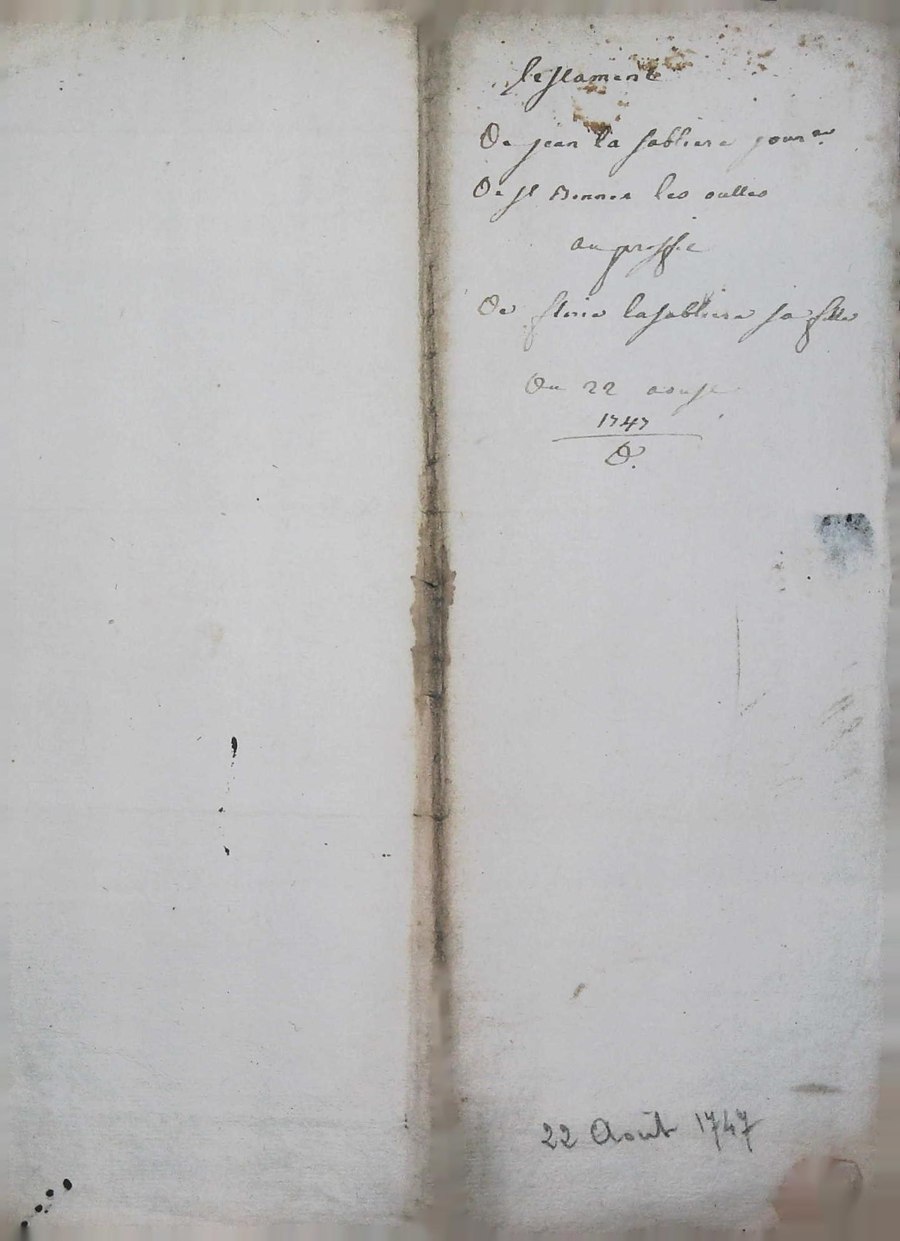 testament
De jean la sabliere jour.er
De st Bonnet les oulles
au proffic
De florie lasabliere sa fille
Du 22 aoust
1747
D.
22 Août 1747